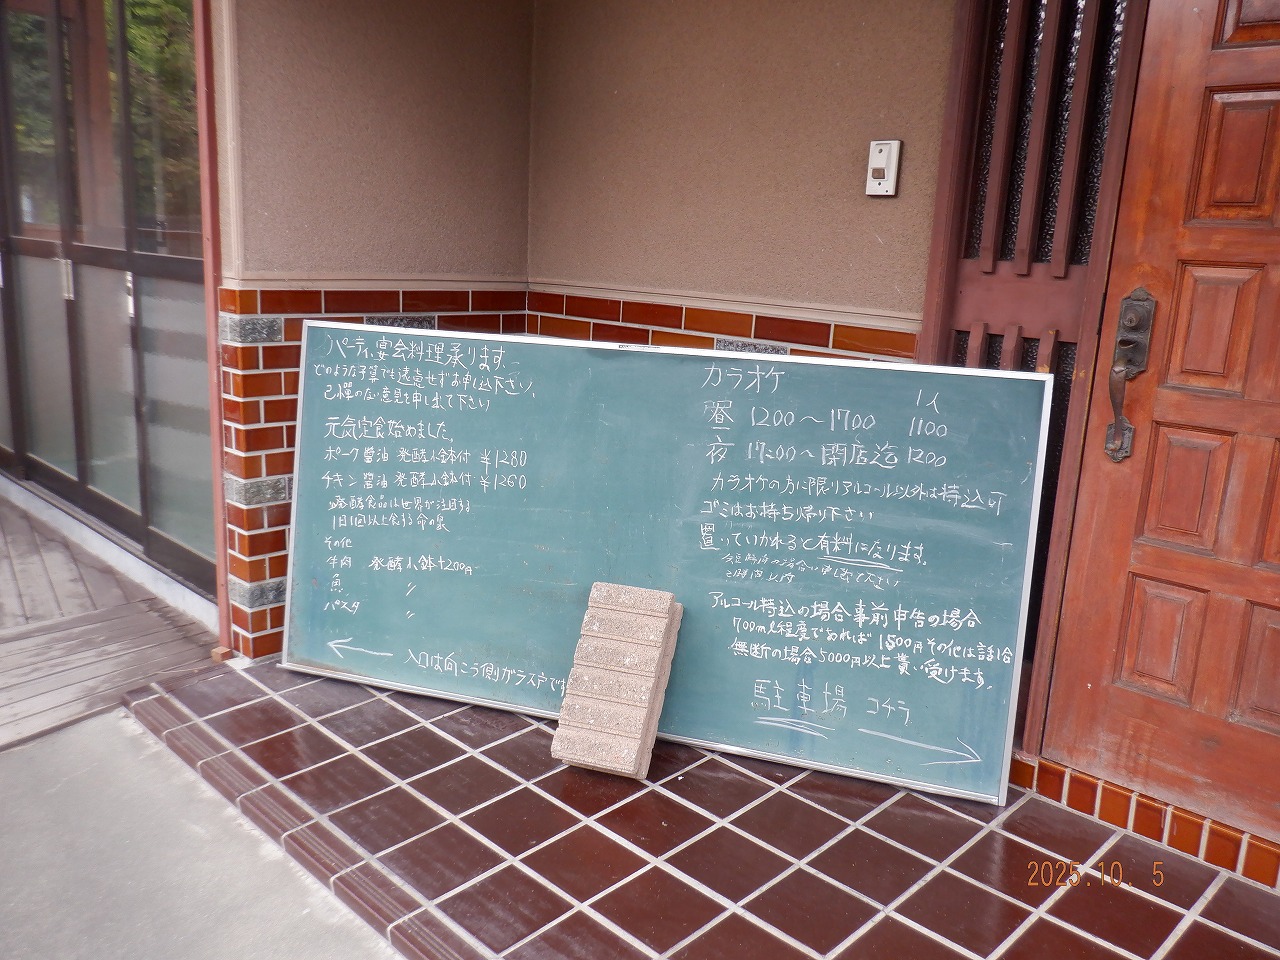 パーティ、宴会料理承ります
どのような予算でも遠慮せずお申し込下さい。
己憚のない意見を申し出て下さい
元気定食始めました。
ポーク醤油 発酵小鉢付 ¥1280
チキン醤油 発酵小鉢付 ¥1260
発酵食品は世界が注目する
1日1回以上食する命の泉
その他
牛肉 発酵小鉢+200円
魚 〃
パスタ 〃
← 入口は向こう側ガラス戸です
カラオケ
1人
昼 1200〜1700 1100
夜 17:00〜閉店迄 1200
カラオケの方に限りアルコール以外は持込可
ゴミはお持ち帰り下さい
置っていかれると有料になります。
アルコール持込の場合事前申告の場合
700ml程度であれば1500円その他は話合
無断の場合5000円以上貰い受けます。
駐車場 コチラ →
2025.10. 5